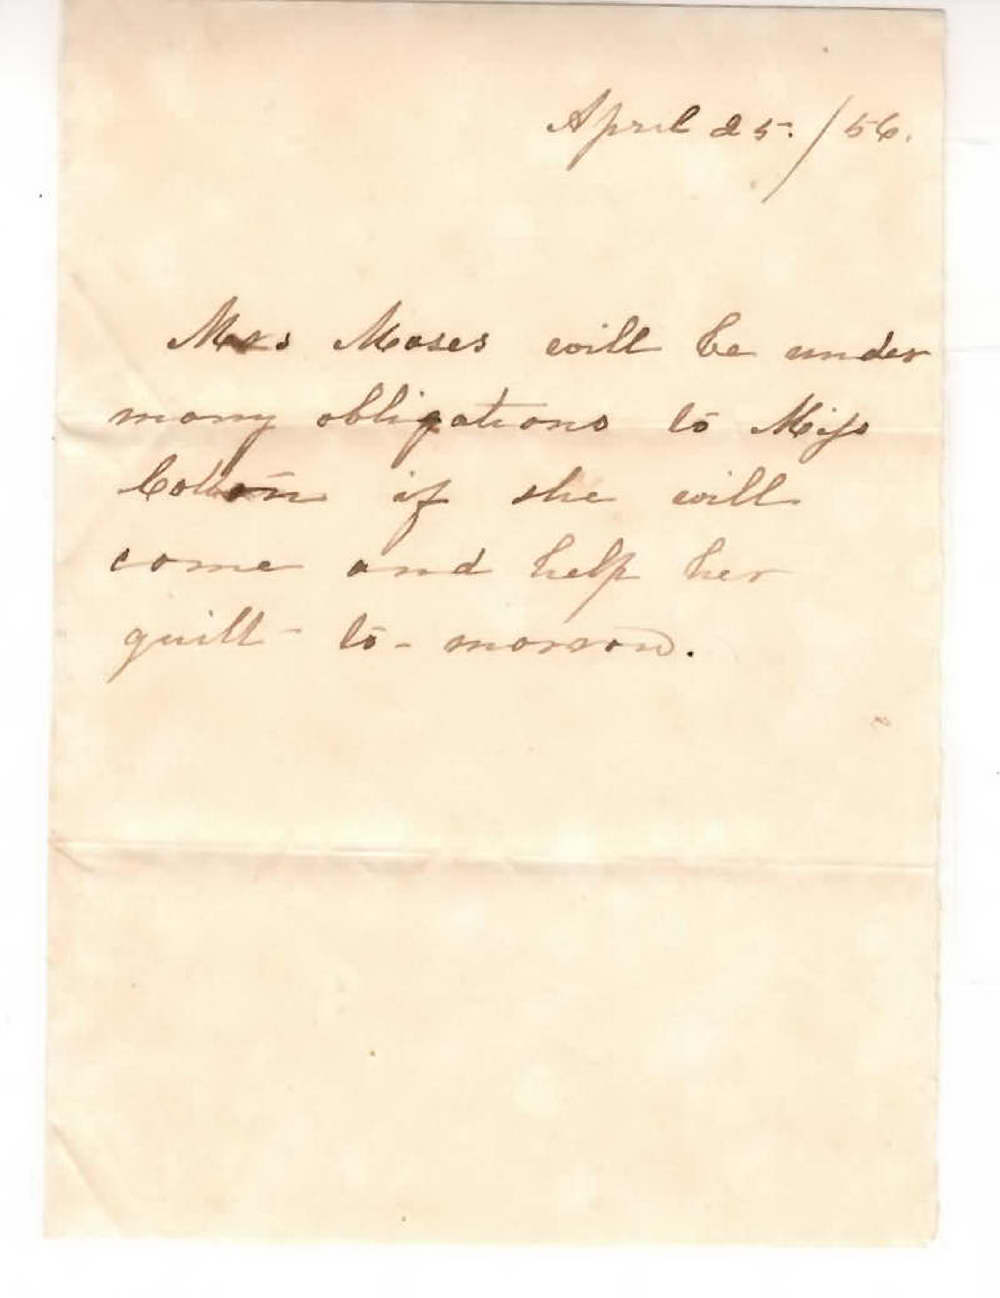 April 25./56.
Mrs Moses will be under
many obligations to Miss
Cotton if she will
come and help her
quilt to-morrow.